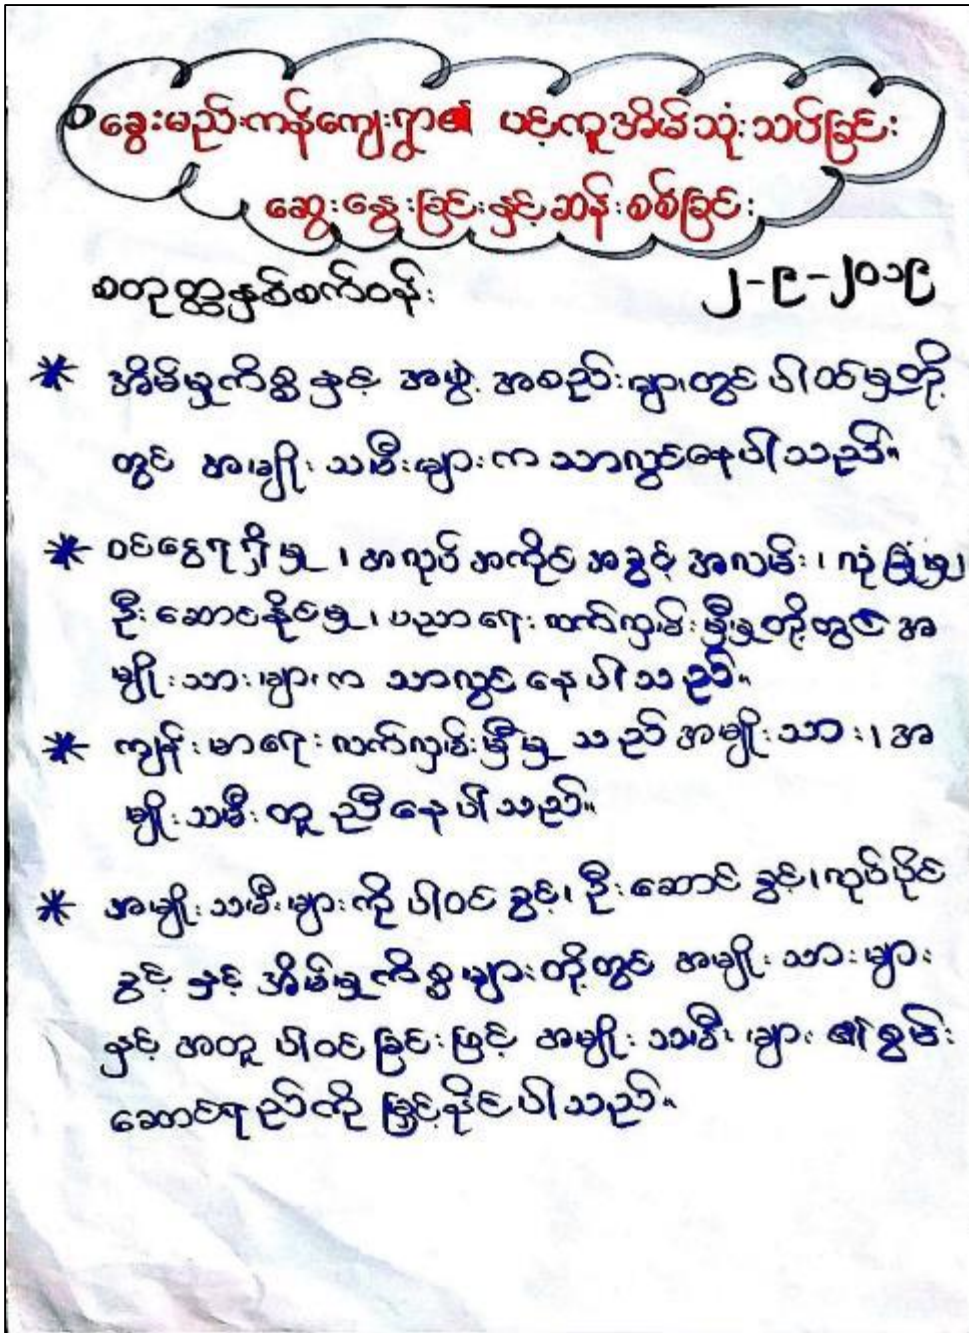 ခွေးမည်းကန်ကျေးရွာ၏ ပင့်ကူအိမ်သုံးသပ်ခြင်း
ဆွေးနွေးခြင်းနှင့်ဆန်းစစ်ခြင်း
စတုတ္ထနှစ်စက်ဝန်း ၂-၉-၂၀၁၉
* အိမ်မှုကိစ္စ နှင့် အဖွဲ့ အစည်းများတွင် ပါဝင်မှုတို့
တွင် အမျိုးသမီးများက သာလွန်နေပါသည်။
* ဝင်ငွေရရှိမှု ၊ အလုပ် အကိုင် အခွင့် အလမ်း ၊ လုံခြုံမှု၊
ဦးဆောင်နိုင်မှု ၊ ပညာရေး လက်လှမ်းမှီမှုတို့တွင် အ
မျိုးသားများက သာလွန် နေပါသည်။
* ကျန်းမာရေး လက်လှမ်းမှီမှု သည် အမျိုးသား ၊ အ
မျိုးသမီး တူညီနေပါသည်။
* အမျိုးသမီးများကို ပါဝင် ခွင့်၊ ဦးဆောင် ခွင့်၊ လုပ်ပိုင်
ခွင့် နှင့် အိမ်မှုကိစ္စများတို့တွင် အမျိုးသားများ
နှင့် အတူ ပါဝင်ခြင်းဖြင့် အမျိုးသမီးများ ၏ စွမ်း
ဆောင်ရည်ကို မြှင့်နိုင်ပါသည်။